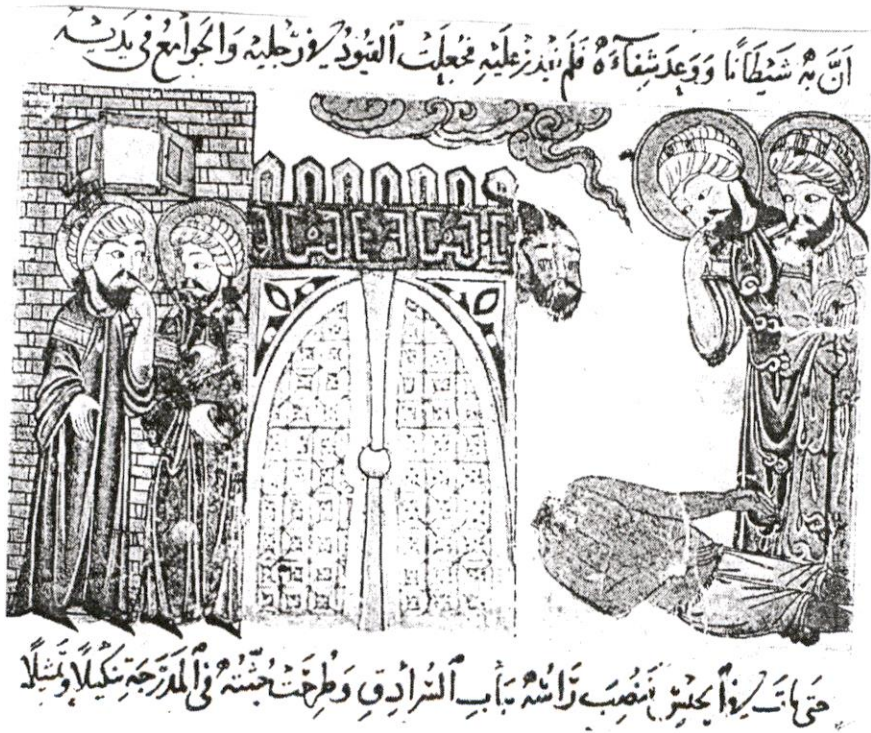 اَنَّ بِهِ شَيْطَانًا وَوَعَدَ شِفَآءَهُ فَلَمْ يَقْدِرْ عَلَيْهِ فَجُعِلَتِ ٱلقيُودُ فِي رِجْلَيْهِ وَالجَوَامِعُ فِى يَدَيْهِ
حَتَى مَاتَ فِي ٱلحَبْسِ فَنُصِبَ رَأْسُهُ بِبَابِ ٱلسُّرَادِقِ وَطُرِحَتْ جُثَّتُهُ فِى ٱلمَدْرَجَةِ تَنْكِيلًا وَتَمْثِيلًا